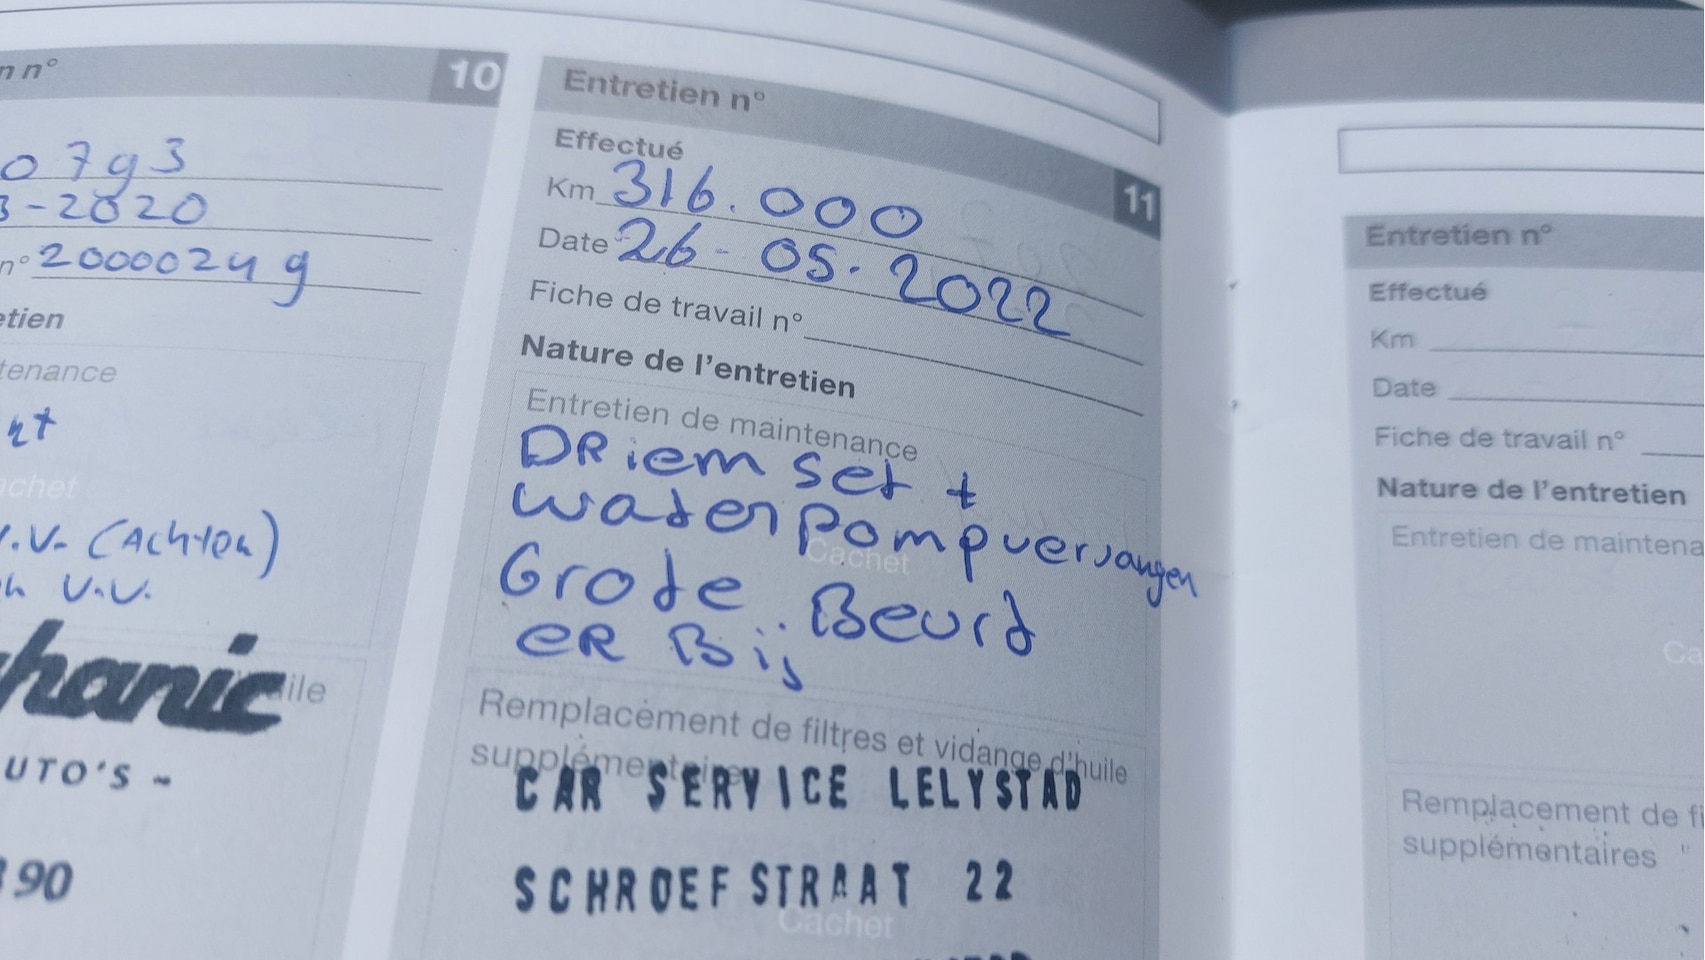 n n° 10
0793
3-2020
n° 20000249
etien
tenance
achet
V.V. (Achter)
V.V.
hanic
ile
UTO'S -
90
Entretien n° 11
Effectué
Km 316.000
Date 26-05.2022
Fiche de travail n°
Nature de l'entretien
Entretien de maintenance
DRiem set +
waterpompvervangen
Cachet
Grote Beurt
ER Bij
Remplacement de filtres et vidange d'huile
supplémentaires
CAR SERVICE LELYSTAD
SCHROEFSTRAAT 22
Cachet
Entretien n°
Effectué
Km
Date
Fiche de travail n°
Nature de l'entretien
Entretien de maintena
Ca
Remplacement de fi
supplémentaires